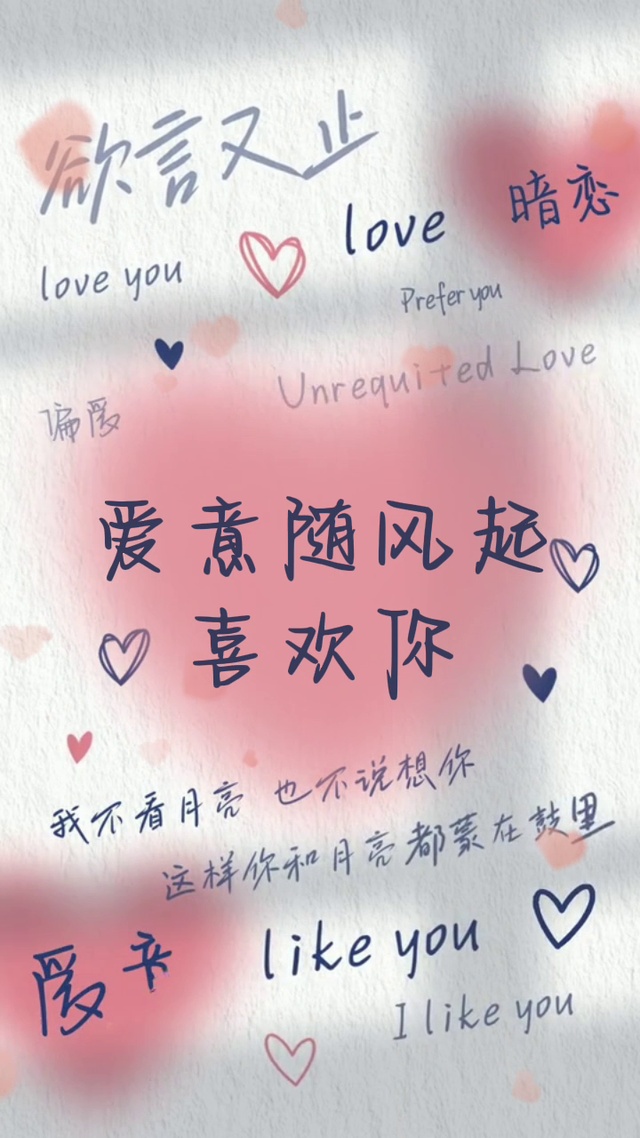 欲言又止
暗恋
love
love you
Prefer you
Unrequited Love
偏爱
爱意随风起
喜欢你
我不看月亮 也不说想你
这样你和月亮都蒙在鼓里
like you
I like you